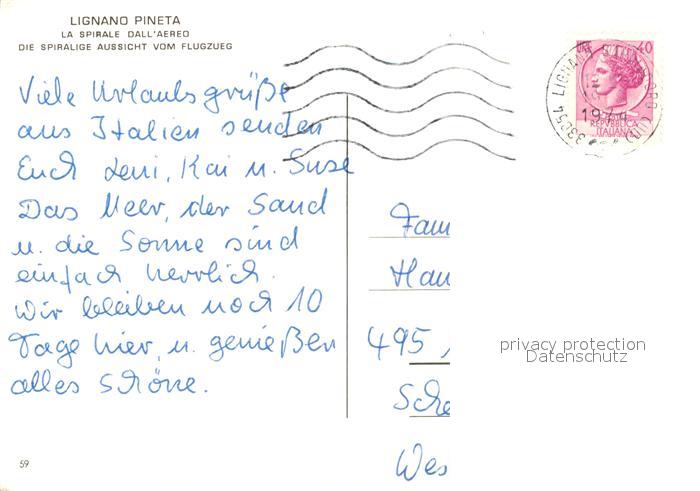 LIGNANO PINETA
LA SPIRALE DALL'AEREO
DIE SPIRALIGE AUSSICHT VOM FLUGZUEG
Viele Urlaubsgrüße
aus Italien senden
Euch Leni, Kai u. Suse
Das Meer, der Sand
u. die Sonne sind
einfach herrlich.
Wir bleiben noch 10
Tage hier, u. genießen
alles Schöne.
59
LIRE 40
REPUBBLICA
ITALIANA
33054 LIGNANO
1974
Fam
Hau
495
Sche
Wes
privacy protection
Datenschutz